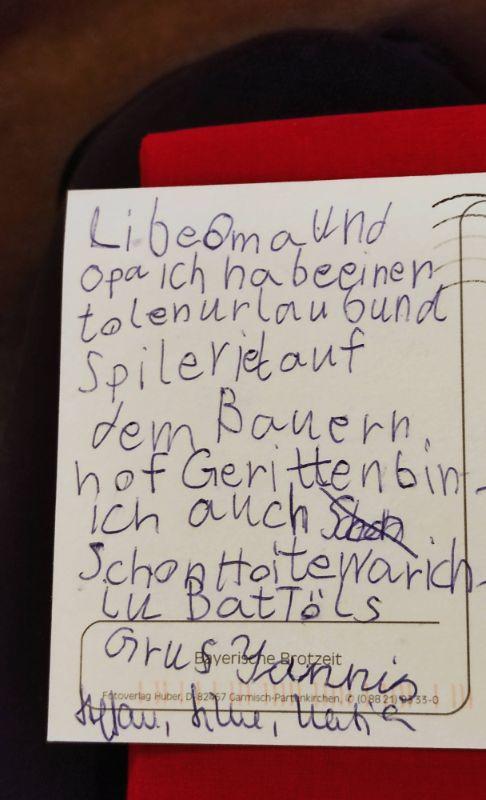 LibeOmaUnd
Opa ich habeeinen
tolenurlaubund
Spiler jetauf
dem Bauern.
hof Gerittenbin-
ich auch
SchonHoiteWarich-
in BatTöls
Gruß Yannis
Bayerische Brotzeit
Fotoverlag Huber, D-82467 Garmisch-Partenkirchen, ✆ (0 88 21) 93 33-0